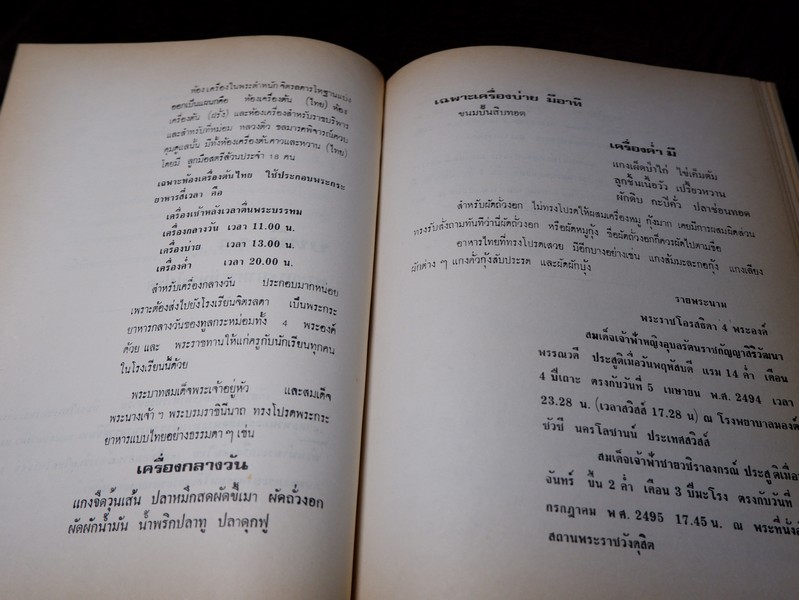 ห้องเครื่องในพระตำหนักจิตรลดารโหฐานแบ่ง
ออกเป็นแผนกคือ ห้องเครื่องต้น (ไทย) ห้อง
เครื่องต้น (ฝรั่ง) และห้องเครื่องสำหรับราชบริพาร
และสำหรับที่หม่อม หลวงติ๋ว ชลมารคพิจารณ์ควบ
คุมดูแลนั้น มีทั้งห้องเครื่องต้นคาวและหวาน (ไทย)
โดยมี ลูกมือสตรีล้วนประจำ 18 คน
เฉพาะห้องเครื่องต้นไทย ใช้ประกอบพระกระ
ยาหารสี่เวลา คือ
เครื่องเช้าหลังเวลาตื่นพระบรรทม
เครื่องกลางวัน เวลา 11.00 น.
เครื่องบ่าย เวลา 13.00 น.
เครื่องค่ำ เวลา 20.00 น.
สำหรับเครื่องกลางวัน ประกอบมากหน่อย
เพราะต้องส่งไปยังโรงเรียนจิตรลดา เป็นพระกระ
ยาหารกลางวันของทูลกระหม่อมทั้ง 4 พระองค์
ด้วย และ พระราชทานให้แก่ครูกับนักเรียนทุกคน
ในโรงเรียนนี้ด้วย
พระบาทสมเด็จพระเจ้าอยู่หัว และสมเด็จ
พระนางเจ้า ฯ พระบรมราชินีนาถ ทรงโปรดพระกระ
ยาหารแบบไทยอย่างธรรมดา ๆ เช่น
เครื่องกลางวัน
แกงจืดวุ้นเส้น ปลาหมึกสดผัดขี้เมา ผัดถั่วงอก
ผัดผักน้ำมัน น้ำพริกปลาทู ปลาดุกฟู
เฉพาะเครื่องบ่าย มีอาทิ
ขนมปั้นสิบทอด
เครื่องค่ำ มี
แกงเผ็ดเป็ดไก่ ไข่เค็มต้ม
ลูกชิ้นเนื้อวัว เปรี้ยวหวาน
ผักดิบ กะปิคั่ว ปลาช่อนทอด
สำหรับผัดถั่วงอก ไม่ทรงโปรดให้ผสมเครื่องหมู กุ้งมาก เคยมีการผสมผิดส่วน
ทรงรับสั่งถามทันทีว่านี่ผัดถั่วงอก หรือผัดหมูกุ้ง ชื่อผัดถั่วงอกก็ควรผัดไปตามชื่อ
อาหารไทยที่ทรงโปรดเสวย มีอีกบางอย่างเช่น แกงส้มมะละกอกุ้ง แกงเลียง
ผักต่าง ๆ แกงคั่วกุ้งสับปะรด และผัดผักบุ้ง
รายพระนาม
พระราชโอรสธิดา 4 พระองค์
สมเด็จเจ้าฟ้าหญิงอุบลรัตนราชกัญญาสิริวัฒนา
พรรณวดี ประสูติเมื่อวันพฤหัสบดี แรม 14 ค่ำ เดือน
4 ปีเถาะ ตรงกับวันที่ 5 เมษายน พ.ศ. 2494 เวลา
23.28 น. (เวลาสวิสส์ 17.28 น) ณ โรงพยาบาลมองต์
ชัวซี นครโลซานน์ ประเทศสวิสส์
สมเด็จเจ้าฟ้าชายวชิราลงกรณ์ ประสูติเมื่อ
จันทร์ ขึ้น 2 ค่ำ เดือน 3 ปีมะโรง ตรงกับวันที่
กรกฎาคม พ.ศ. 2495 17.45 น. ณ พระที่นั่งอั
สถานพระราชวังดุสิต